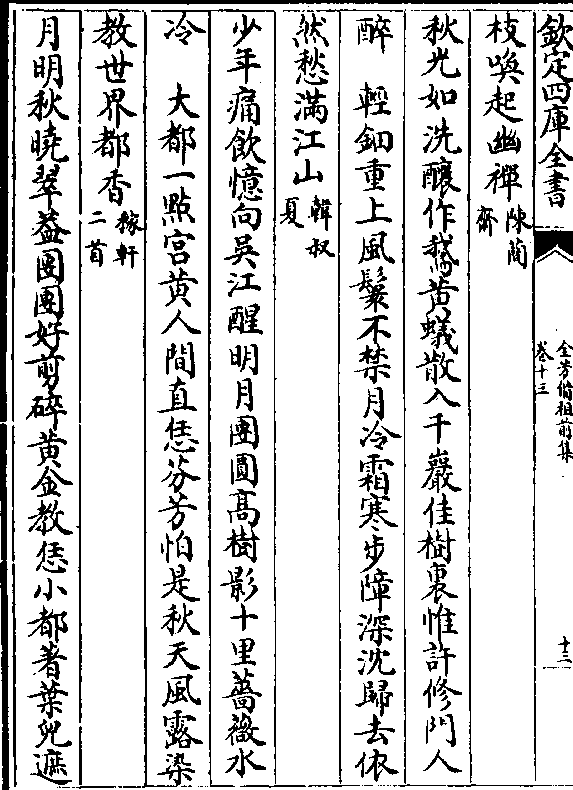 欽定四庫全書
全芳備祖前集
卷十三
十三
枝喚起幽禪陳蕳
齋
秋光如洗釀作鵞黄蟻散入千巖佳樹裏惟許修門人
醉　輕鈿重上風鬟不禁月冷霜寒步障深沈歸去依
然愁滿江山韓叔
夏
少年痛飲憶向吳江醒明月團圓髙樹影十里薔薇水
冷　大都一㸃宫黄人間直恁芬芳怕是秋天風露染
教世界都香稼軒
二首
月明秋曉翠葢團團好剪碎黄金教恁小都著葉兒遮